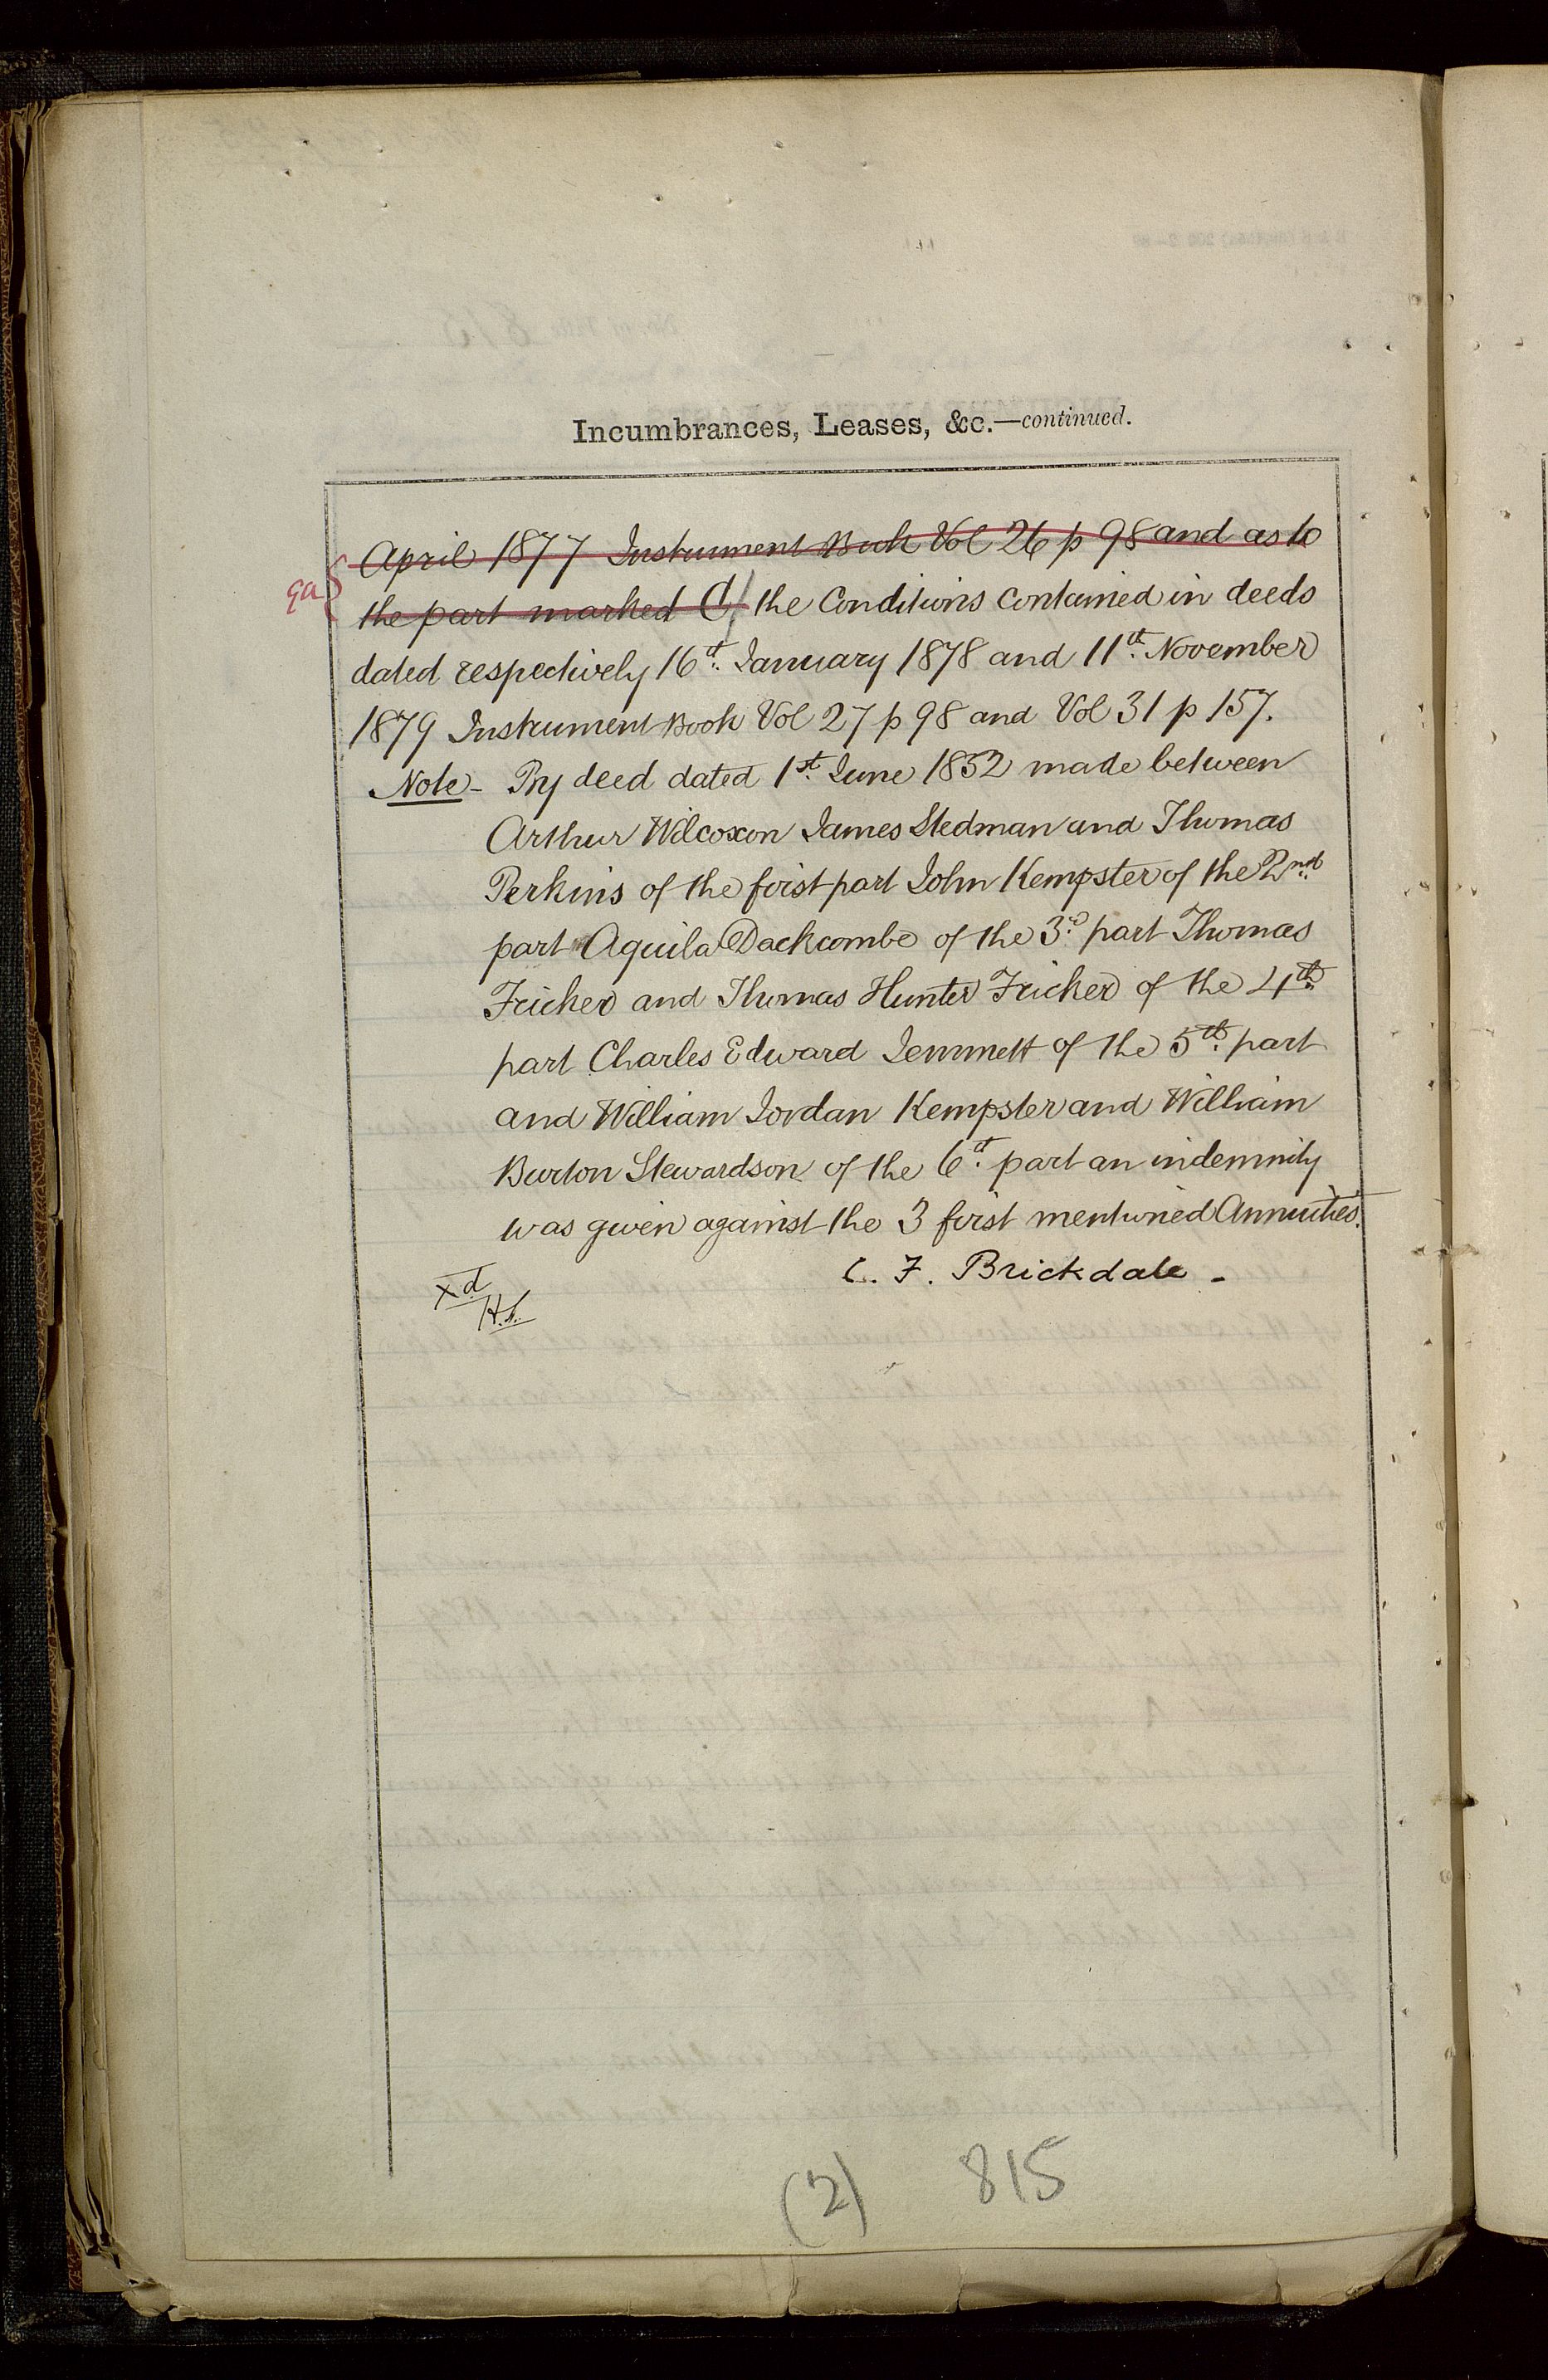 Incumbrances, Leases, &c.—continued.
April 1877 Instrument Book Vol 26 p 98 and as to
the part marked C the Conditions contained in deeds
dated respectively 16th January 1878 and 11th November
1879 Instrument Book Vol 27 p 98 and Vol 31 p 157.
Note - By deed dated 1st June 1852 made between
Arthur Wilcoxon James Stedman and Thomas
Perkins of the first part John Kempster of the 2nd
part Aquila Dackcombe of the 3rd part Thomas
Fricker and Thomas Hunter Fricker of the 4th
part Charles Edward Jemmett of the 5th part
and William Jordan Kempster and William
Burton Stewardson of the 6th part an indemnity
was given against the 3 first mentioned Annuities.
C. F. Brickdale -
xd
(2) 815